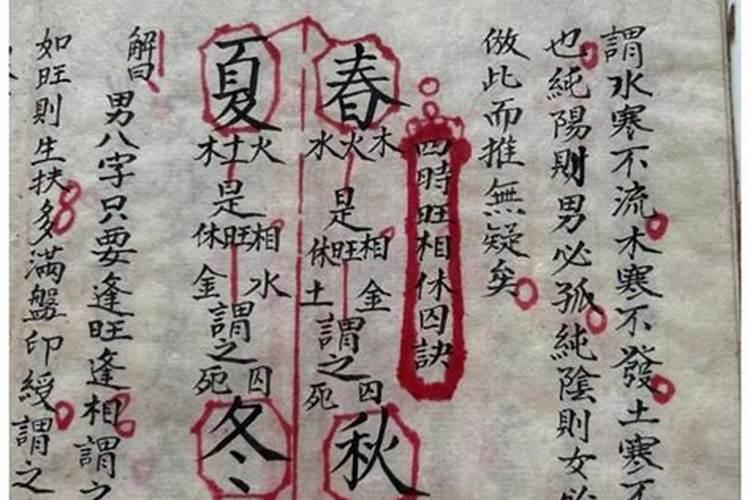 謂水寒不流木寒不發土寒不
也純陽則男必孤純陰則女必
倣此而推無疑矣
四時旺相休囚訣
春
木火水
是
相旺休
金土
謂之
囚死
秋
夏
火土木
是
相旺休
水金
謂之
囚死
冬
解曰
男八字只要逢旺逢相謂之
如旺則生扶多滿盤印綬謂之